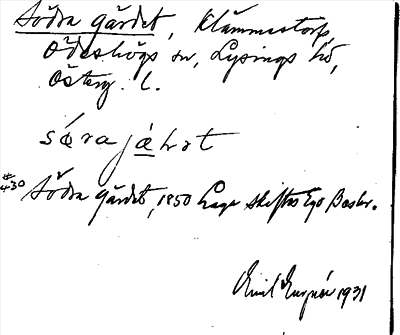 Södra gärdet, Klämmestorp,
Ödeshögs sn, Lysings hd,
Österg. l.
sǿra jæ̱ʟət
#430 Södra Gärdet, 1850 Laga skiftes Ego Beskr.
Emil 1931